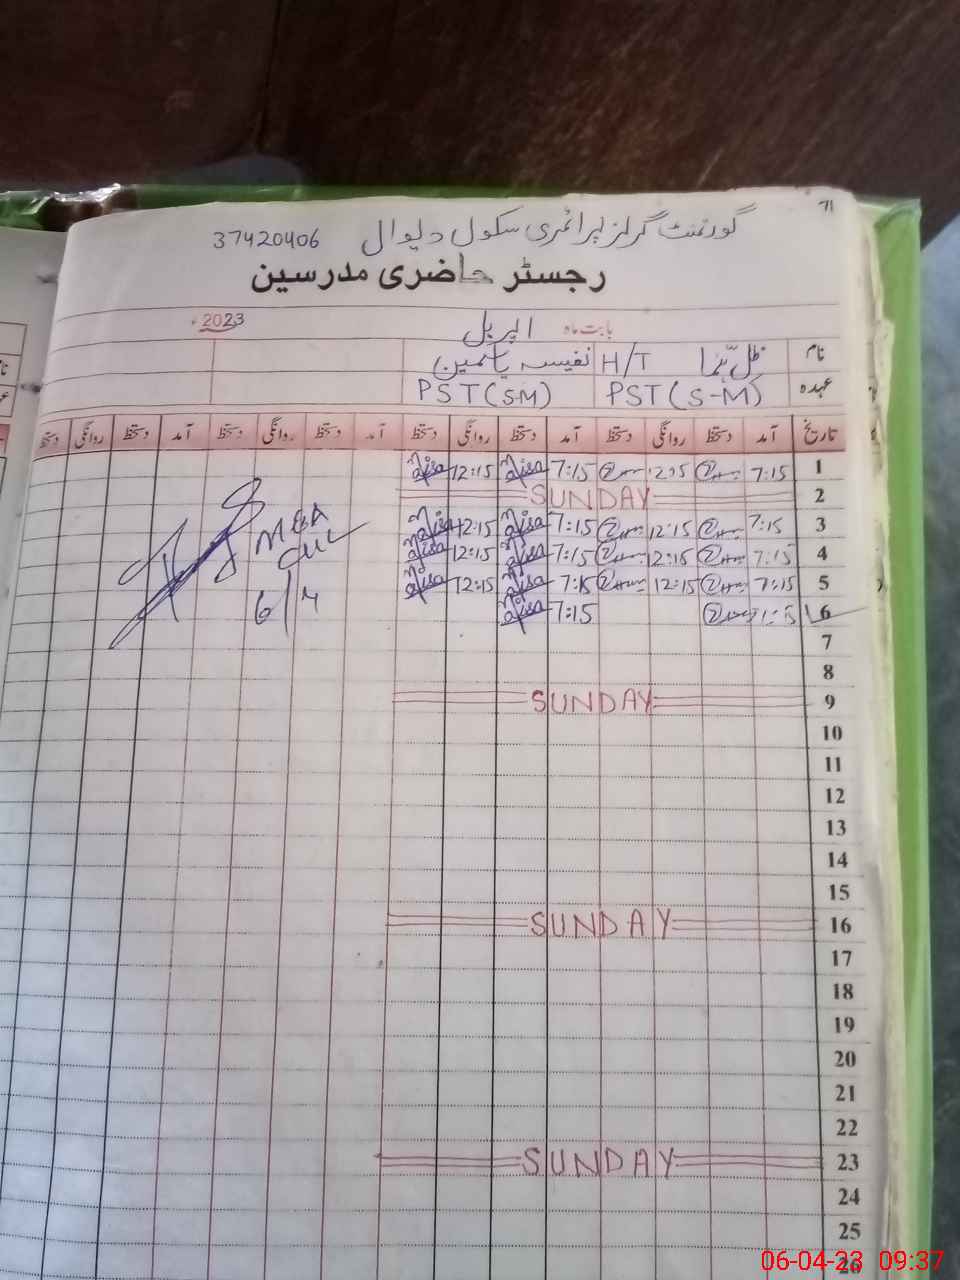 71
گورنمنٹ گرلز پرائمری سکول دیوال 37420406
رجسٹر حاضری مدرسین
بابت ماہ اپریل 2023ء
نام ظلِّ ہما H/T نفیسہ یاسمین
عہدہ PST (S-M) PST (S-M)
تاریخ آمد دستخط روانگی دستخط آمد دستخط روانگی دستخط آمد دستخط روانگی دستخط آمد دستخط روانگی دستخط
1 7:15 12:15 7:15 Nafisa 12:15 Nafisa
2 SUNDAY
3 7:15 12:15 7:15 Nafisa 12:15 Nafisa
4 7:15 12:15 7:15 Nafisa 12:15 Nafisa
5 7:15 12:15 7:15 Nafisa 12:15 Nafisa
6 7:15 7:15 Nafisa
MEA
6/4
7
8
9 SUNDAY
10
11
12
13
14
15
16 SUNDAY
17
18
19
20
21
22
23 SUNDAY
24
25
26
06-04-23 09:37